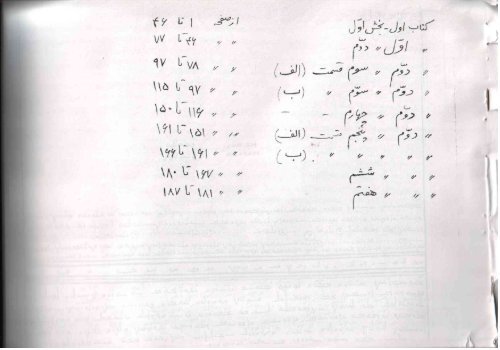 کتاب اول - بخش اول از صفحه ۱ تا ۴۶
〃 اول 〃 دوّم 〃 〃 ۴۶ تا ۷۷
〃 دوّم 〃 سوم قسمت (الف) 〃 〃 ۷۸ تا ۹۷
〃 دوّم 〃 سوّم 〃 (ب) 〃 〃 ۹۷ تا ۱۱۵
〃 دوّم 〃 چهارم - - 〃 〃 ۱۱۶ تا ۱۵۰
〃 دوّم 〃 پنجم قسمت (الف) 〃 〃 ۱۵۱ تا ۱۶۱
〃 〃 〃 〃 〃 (ب) 〃 〃 ۱۶۱ تا ۱۶۶
〃 〃 〃 ششم 〃 〃 ۱۶۷ تا ۱۸۰
〃 〃 〃 هفتم 〃 〃 ۱۸۱ تا ۱۸۷